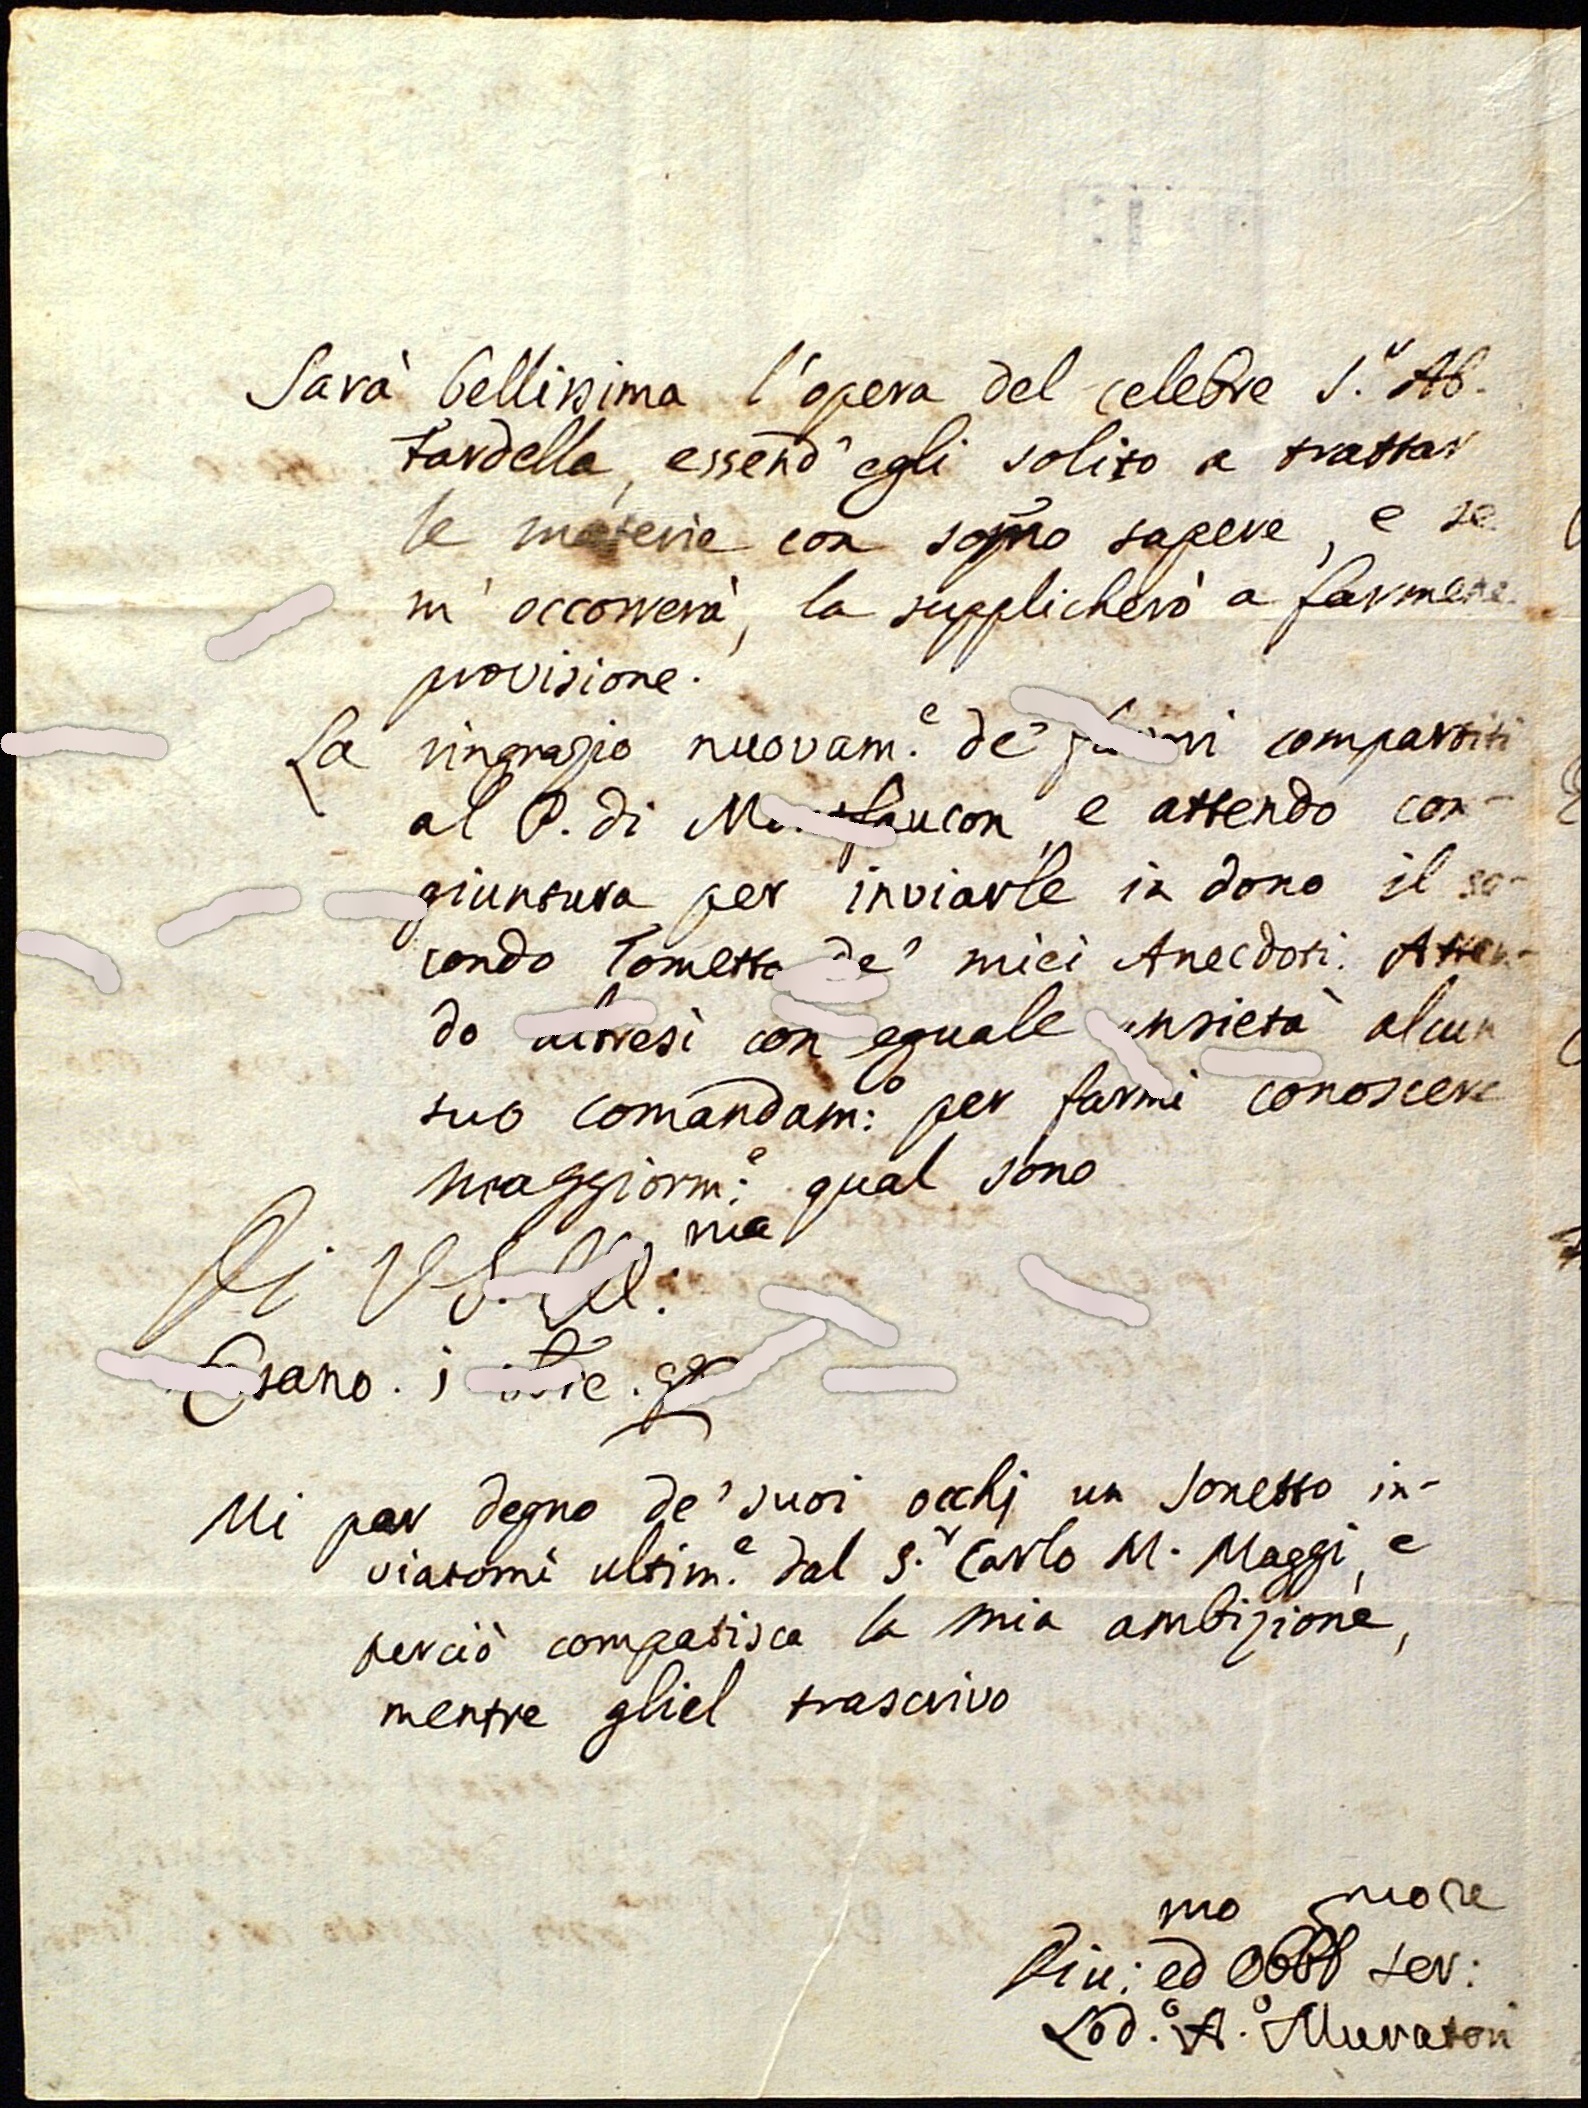 Sarà bellissima l'opera del celebre S.r Ab.
Fardella, essend' egli solito a trattar
le materie con som̃o sapere, e se
m' occorrerà, la supplicherò a farmene
provisione.
La ringrazio nuovam.e de' compartiti
al P. di e attendo con-
giuntura per inviarle in dono il se-
condo Tometto de' miei Anecdoti. Atten-
do con eguale alcun
suo comandam:o per farmi conoscere
maggiorm:e qual sono
Di V S. Ill:ma
mi par degno de' suoi occhj un sonetto in-
viatomi ultim.e dal S.r Carlo M. Maggi, e
perciò compatisca la mia ambizione,
mentre gliel trascrivo
mo mo re
Div: ed Obb ser:
Lod.o A.o Muratori